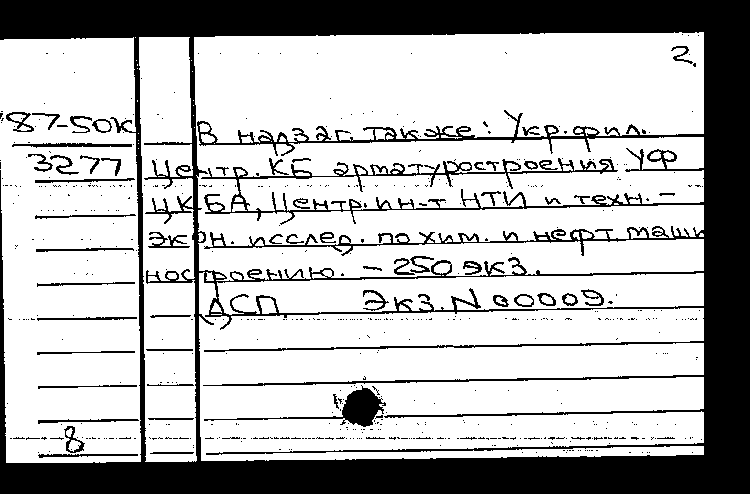 2.
87-50К В надзаг. также: Укр. фил.
3277 Центр. КБ арматуростроения УФ
ЦКБА, Центр. ин-т НТИ и техн. –
экон. исслед. по хим. и нефт. маши
ностроению. – 250 экз.
ДСП Экз. N 00009.
8